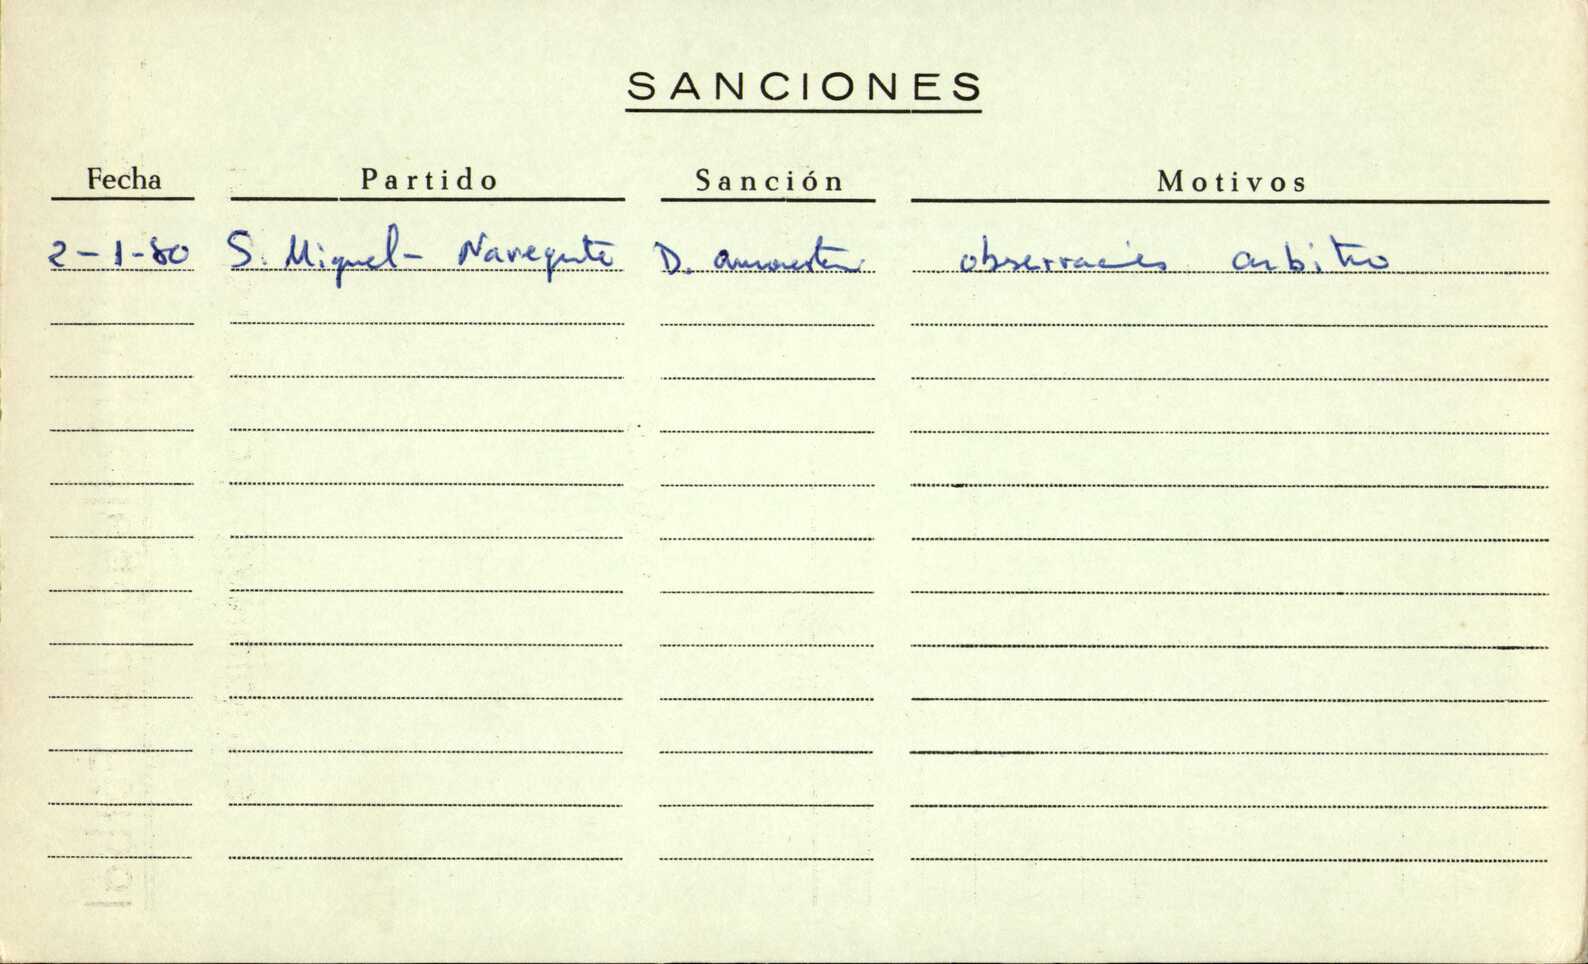 SANCIONES
Fecha Partido Sanción Motivos
2-1-80 S. Miguel- Navegante D. observaciones arbitro